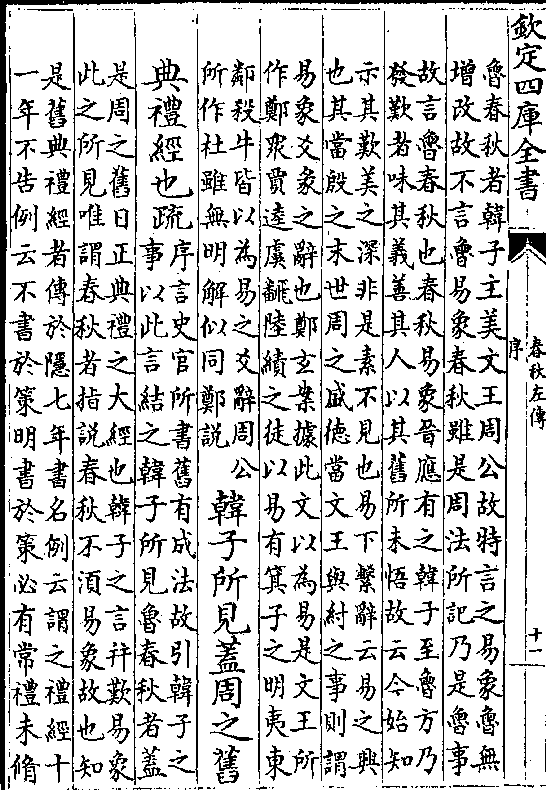 欽定四庫全書
春秋左傳
序
十一
魯春秋者韓子主美文王周公故特言之易象魯無
增改故不言魯易象春秋雖是周法所記乃是魯事
故言魯春秋也春秋易象晉應有之韓子至魯方乃
發歎者味其義善其人以其舊所未悟故云今始知
示其歎美之深非是素不見也易下繫辭云易之興
也其當殷之末世周之盛德當文王與紂之事則謂
易象爻象之辭也鄭玄案據此文以為易是文王所
作鄭衆賈逵虞翻陸績之徒以易有箕子之明夷東
鄰殺牛皆以為易之爻辭周公
所作杜雖無明解似同鄭說
韓子所見蓋周之舊
典禮經也疏
序言史官所書舊有成法故引韓子之
事以此言結之韓子所見魯春秋者蓋
是周之舊日正典禮之大經也韓子之言并歎易象
此之所見唯謂春秋者指説春秋不湏易象故也知
是舊典禮經者傳於隱七年書名例云謂之禮經十
一年不告例云不書於策明書於策必有常禮未脩